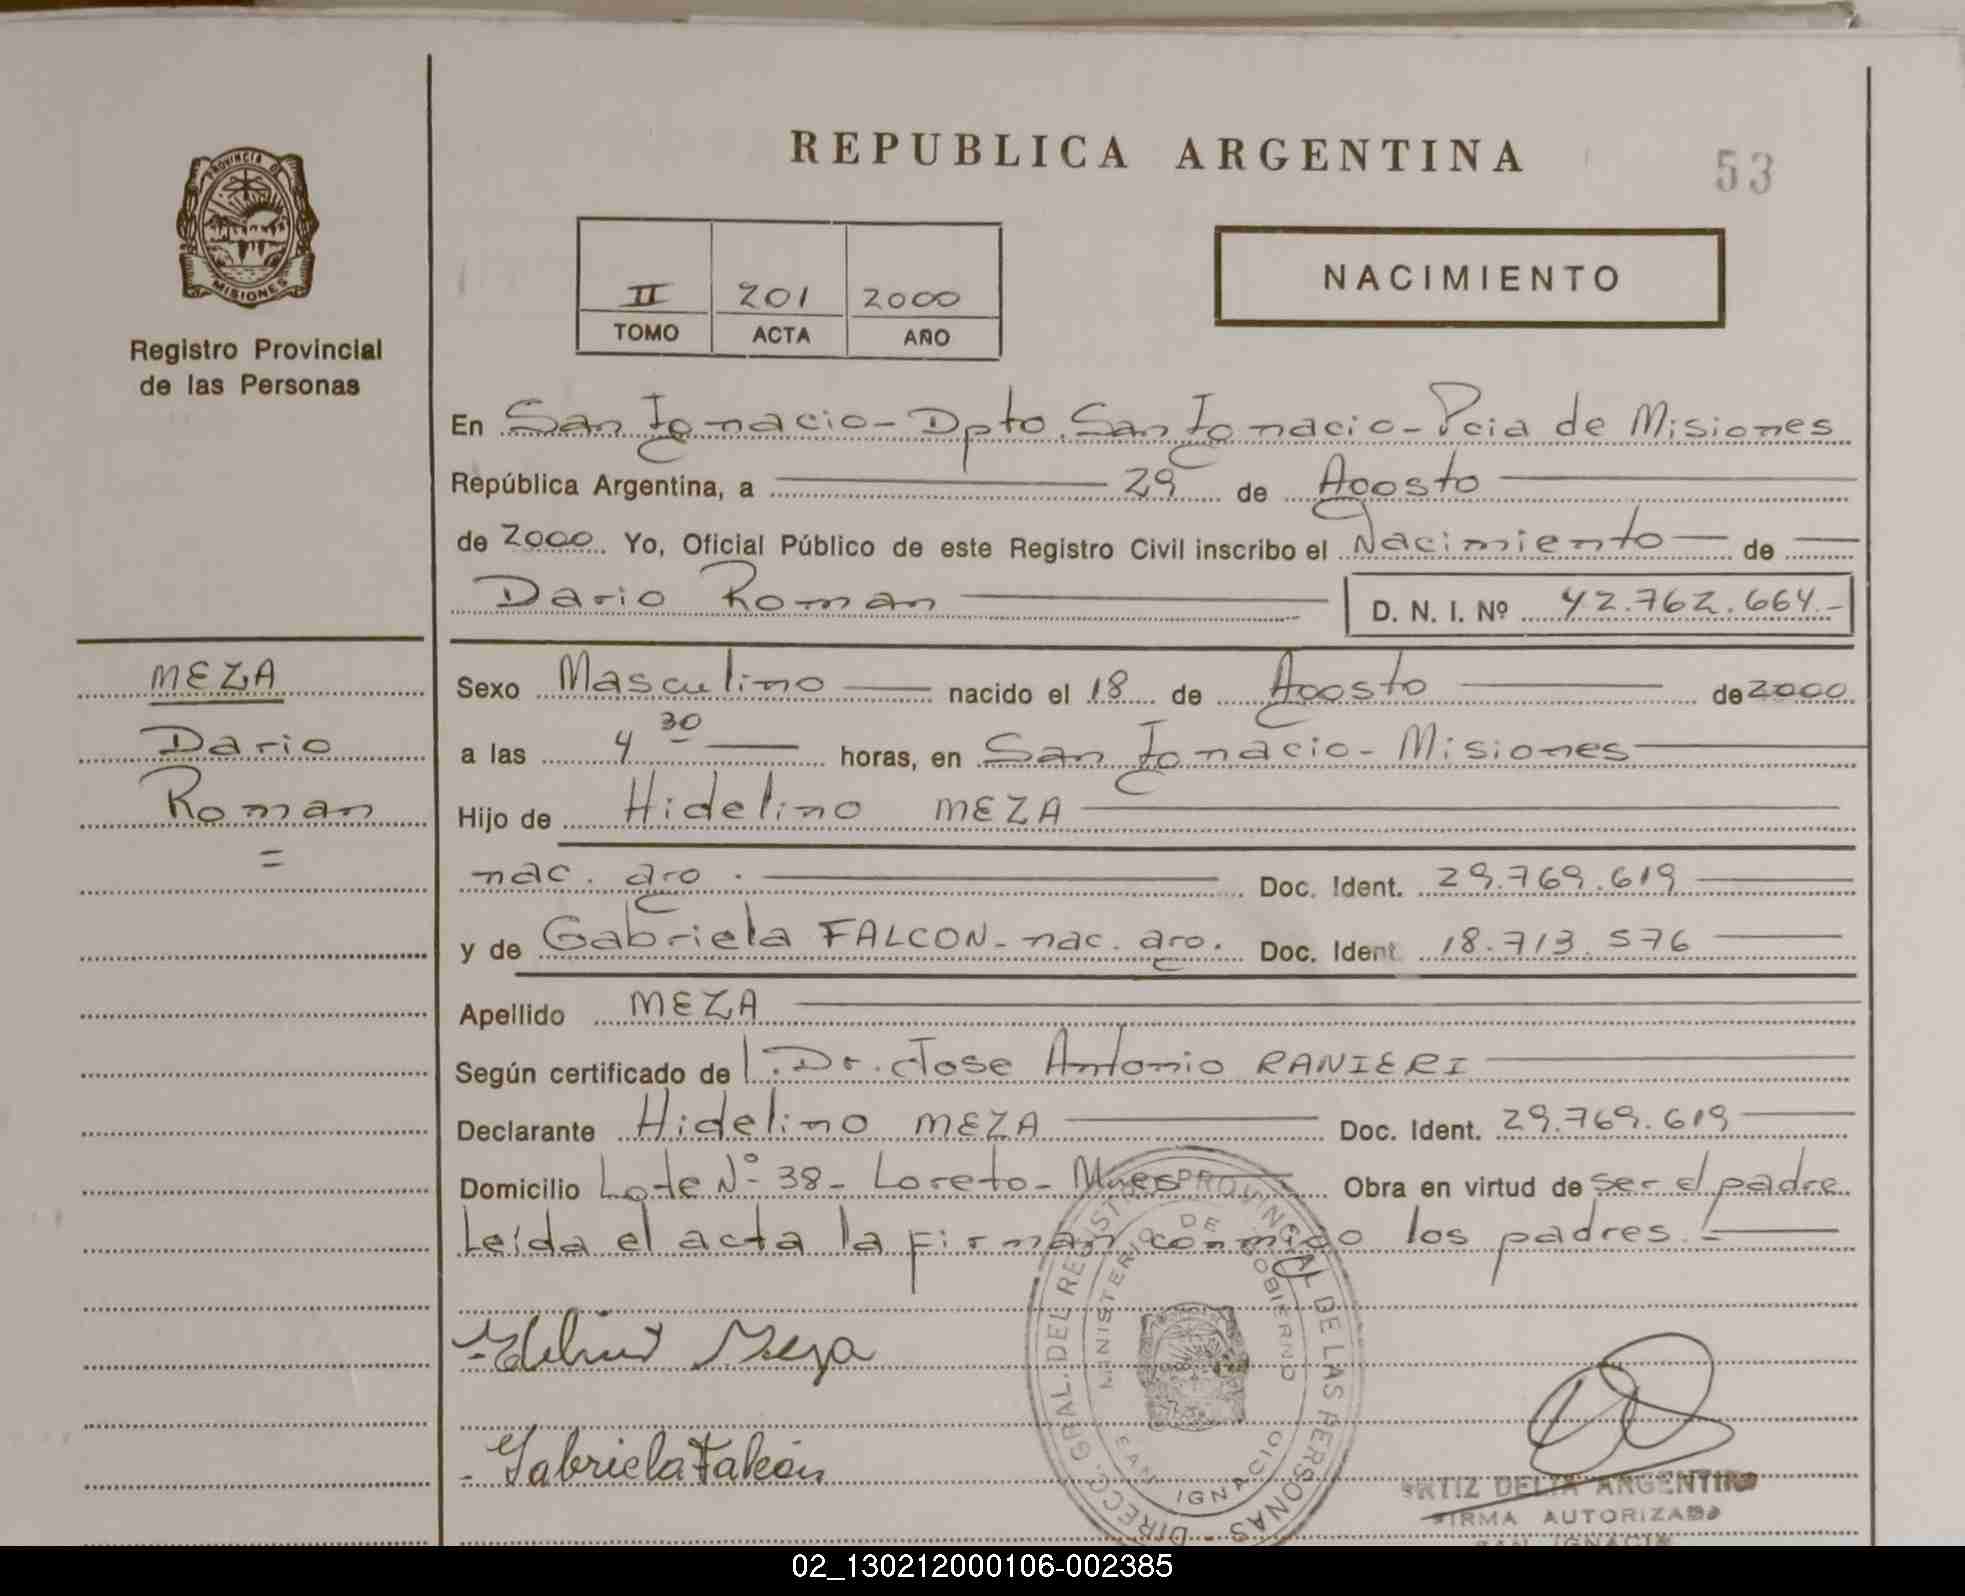 REPUBLICA ARGENTINA
53
PROVINCIA D
MISIONES
Registro Provincial
de las Personas
II 201 2000
TOMO ACTA AÑO
NACIMIENTO
En San Ignacio - Dpto. San Ignacio - Pcia de Misiones
República Argentina, a 29 de Agosto
de 2000. Yo, Oficial Público de este Registro Civil inscribo el Nacimiento de
Dario Roman D. N. I. Nº 42.762.664.-
MEZA
Dario
Roman
=
Sexo Masculino nacido el 18 de Agosto de 2000
a las 4 30 horas, en San Ignacio - Misiones
Hijo de Hidelino MEZA
nac. arg. Doc. Ident. 29.769.619
y de Gabriela FALCON - nac. arg. Doc. Ident. 18.713.576
Apellido MEZA
Según certificado de Dr. Jose Antonio RANIERI
Declarante Hidelino MEZA Doc. Ident. 29.769.619
Domicilio Lote Nº 38 - Loreto - Mnes Obra en virtud de ser el padre
Leída el acta la firman conmigo los padres.-
Meza
Gabriela Falcón
DIRECC. GRAL. DEL REGISTRO PROVINCIAL DE LAS PERSONAS
MINISTERIO DE GOBIERNO
SAN IGNACIO
ORTIZ DELIA ARGENTINA
FIRMA AUTORIZADA
SAN IGNACIO
02_130212000106-002385